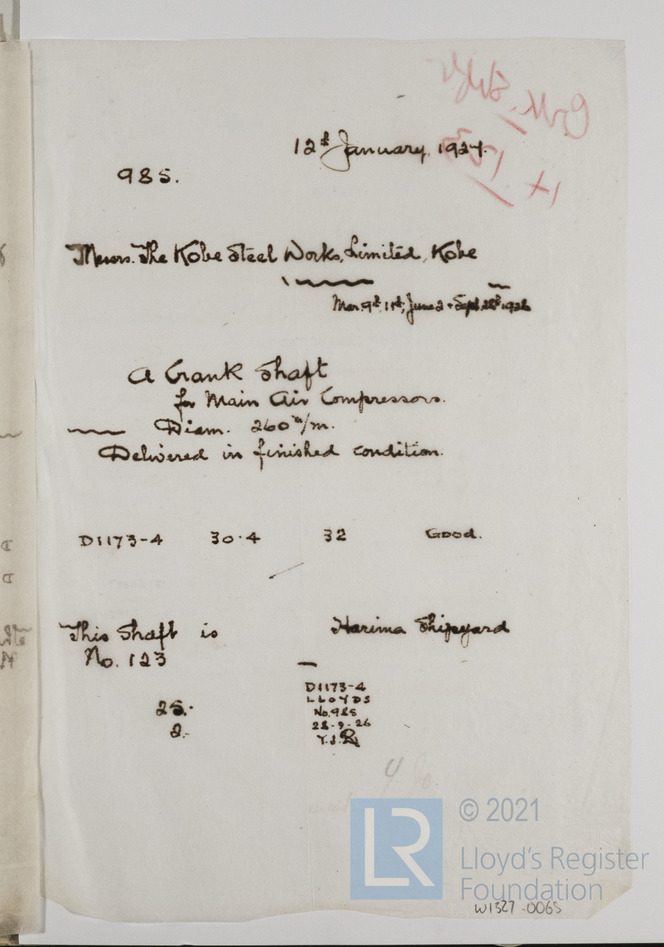 12th January, 1927.
985.
Messrs. The Kobe Steel Works, Limited, Kobe
Mar. 9th, 11th, June 2 & Sept. 28th 1926
A Crank Shaft
for Main Air Compressors.
Diam. 260 m/m.
Delivered in finished condition.
D1173-4 30.4 32 Good.
This Shaft is Harima Shipyard
No. 123
D1173-4
LLOYDS
No. 985
28-9-26
25.-
2.-
© 2021
LR
Lloyd's Register
Foundation
W1327-0065